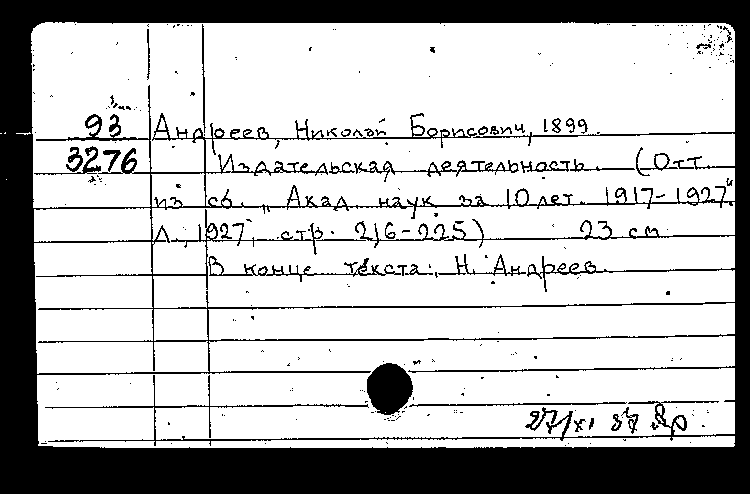 93
3276
Андреев, Николай Борисович, 1899
Издательская деятельность. (Отт
из сб. „Акад. наук за 10 лет. 1917-1927"
Л., 1927, стр. 216-225) 23 см
В конце текста: Н. Андреев.
27/XI 37